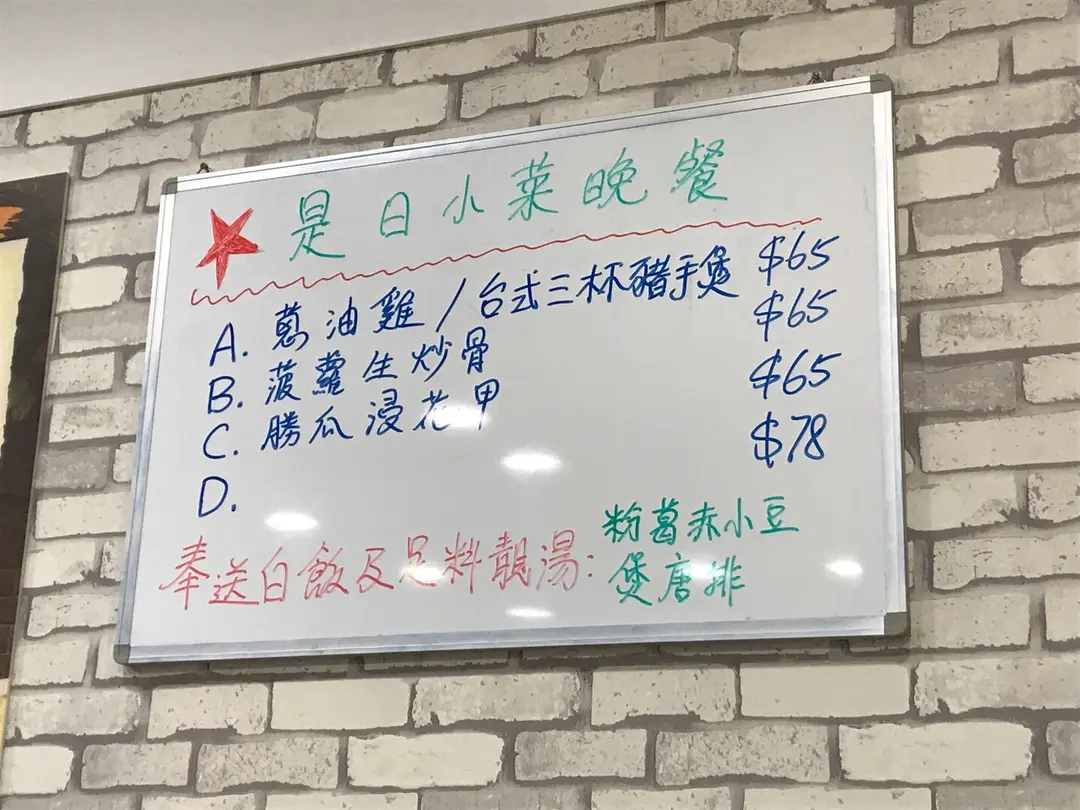 是日小菜晚餐
A. 蔥油雞/台式三杯豬手煲 $65
B. 菠蘿生炒骨 $65
C. 勝瓜浸花甲 $65
D. $78
奉送白飯及足料靚湯: 粉葛赤小豆
煲唐排